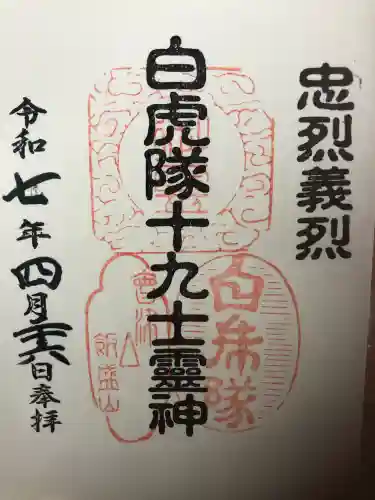 忠烈義烈
白虎隊十九士靈神
令和七年四月二十六日奉拝
白乕隊
會津
飯盛山